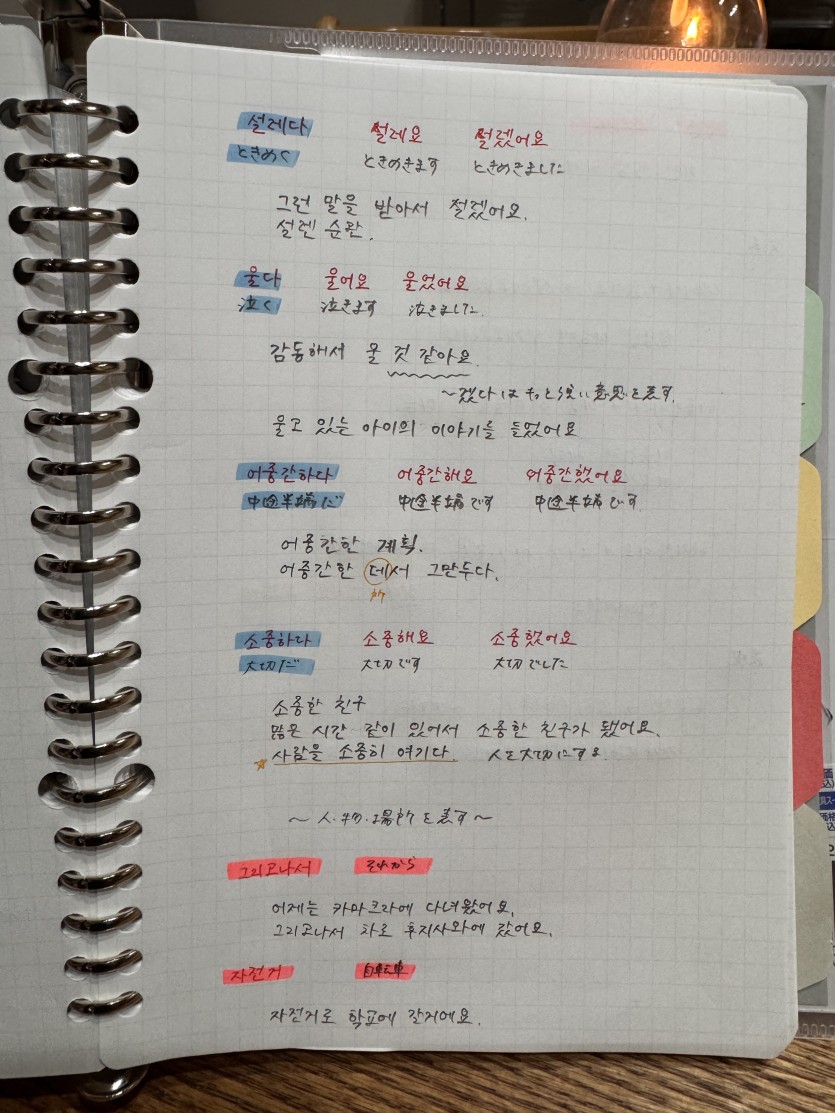 설레다 설레요 설렜어요
ときめく ときめきます ときめきました
그런 말을 받아서 설렜어요.
설렌 순관.
울다 울어요 울었어요
泣く 泣きます 泣きました.
감동해서 울 것 같아요.
～겠다はもっと強い意思を表す.
울고 있는 아이의 이야기를 들었어요
어중간하다 어중간해요 어중간했어요
中途半端だ 中途半端です 中途半端です.
어중간한 계획.
어중간한 데서 그만두다.
所
소중하다 소중해요 소중했어요
大切だ 大切です 大切でした
소중한 친구
많은 시간 같이 있어서 소중한 친구가 됐어요.
사람을 소중히 여기다. 人を大切にする
～人・物・場所を表す～
그리고나서 それから
어제는 카마크라에 다녀왔어요.
그리고나서 차로 후지사와에 갔어요.
자전거 自転車
자전거로 학교에 갈거에요.